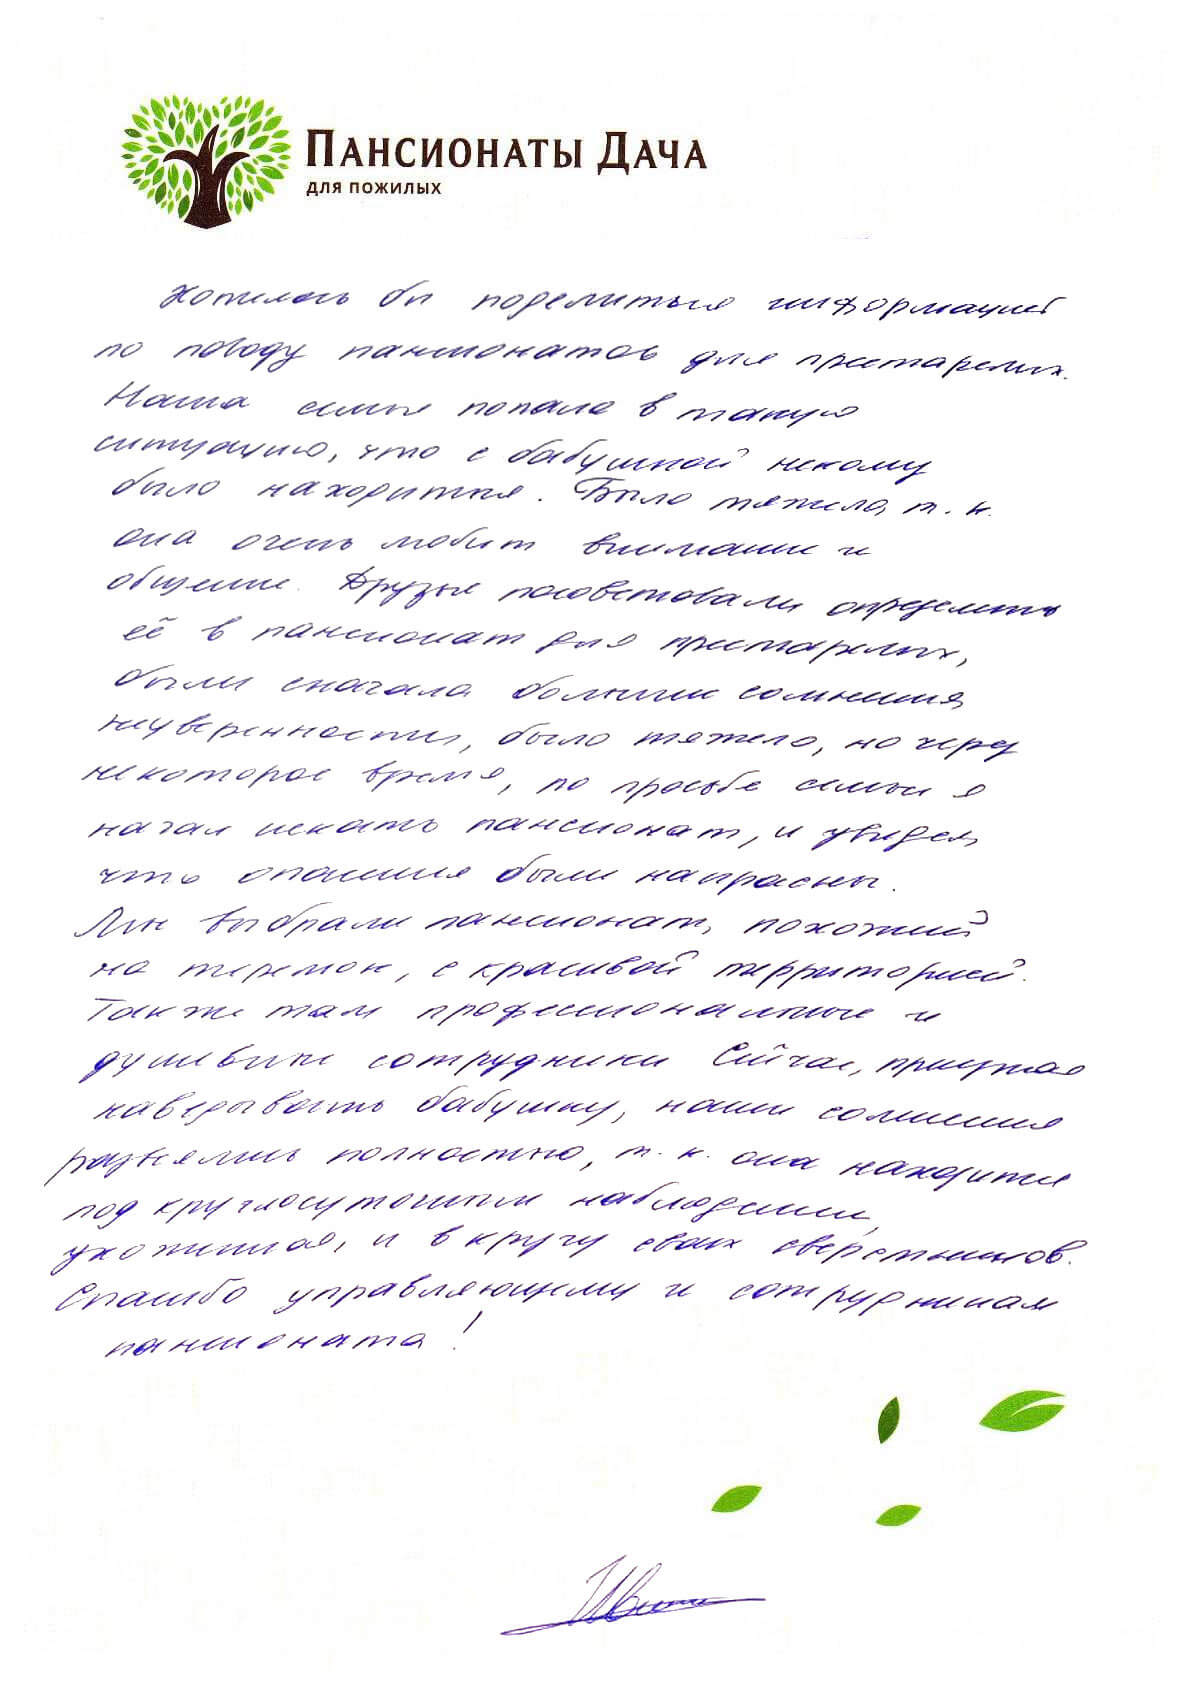 ПАНСИОНАТЫ ДАЧА
ДЛЯ ПОЖИЛЫХ
Хотелось бы поделиться информацией
по поводу пансионатов для престарелых.
Наша семья попала в такую
ситуацию, что с бабушкой некому
было находиться. Было тяжело, т. к.
она очень любит внимание и
общение. Друзья посоветовали определить
её в пансионат для престарелых,
были сначала большие сомнения,
неуверенности, было тяжело, но через
некоторое время, по просьбе семьи я
начал искать пансионат, и увидел,
что опасения были напрасны.
Мы выбрали пансионат, похожий
на теремок, с красивой территорией.
Также там профессиональные и
душевные сотрудники Сейчас, приезжая
навещывать бабушку, наши сомнения
разнеялись полностью, т. к. она находится
под круглосуточным наблюдением,
ухоженная, и в кругу своих сверстников.
Спасибо управляющему и сотрудникам
пансионата!